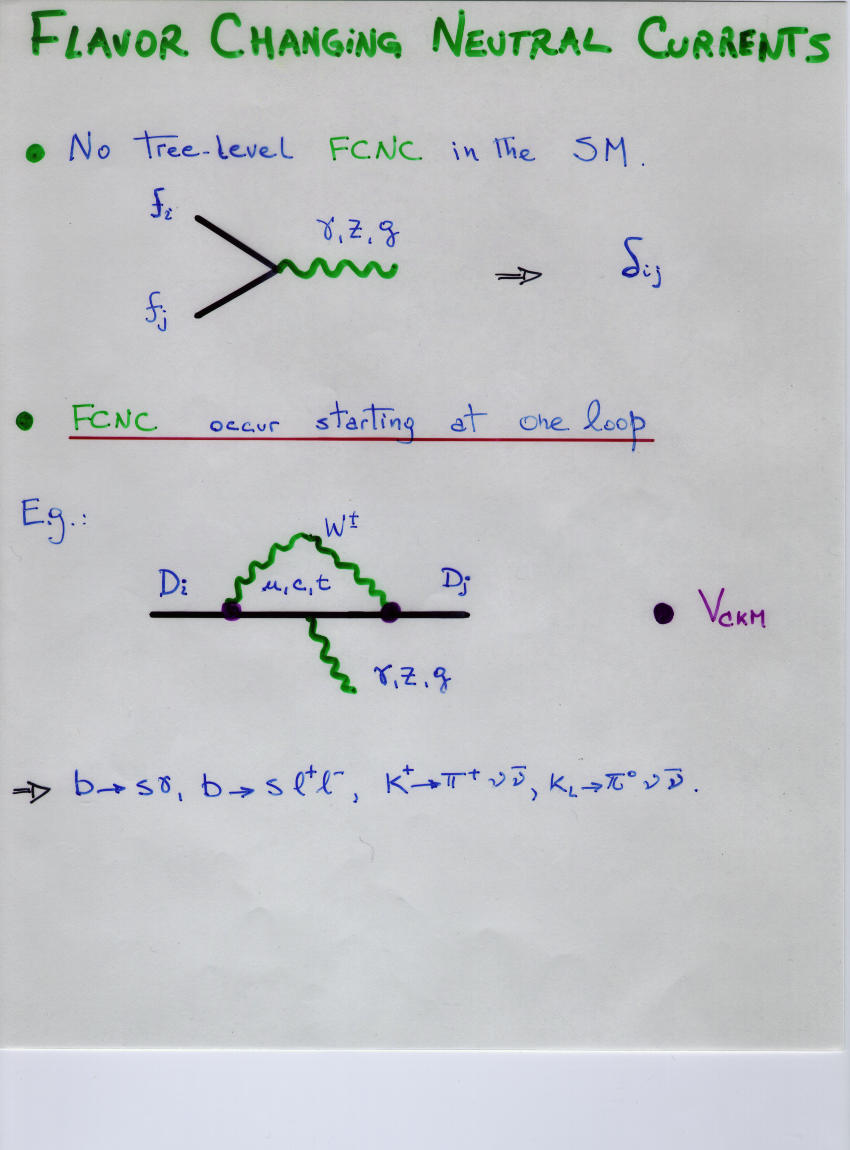 FLAVOR CHANGING NEUTRAL CURRENTS
• No Tree-Level FCNC in the SM.
f_i
γ, Z, g
⇒ δ_ij
f_j
• FCNC occur starting at one loop
E.g.:
W^±
D_i u, c, t D_j
• V_CKM
γ, Z, g
⇒ b → sγ, b → s l^+ l^-, K^+ → π^+ ν ν̄, K_L → π^0 ν ν̄.